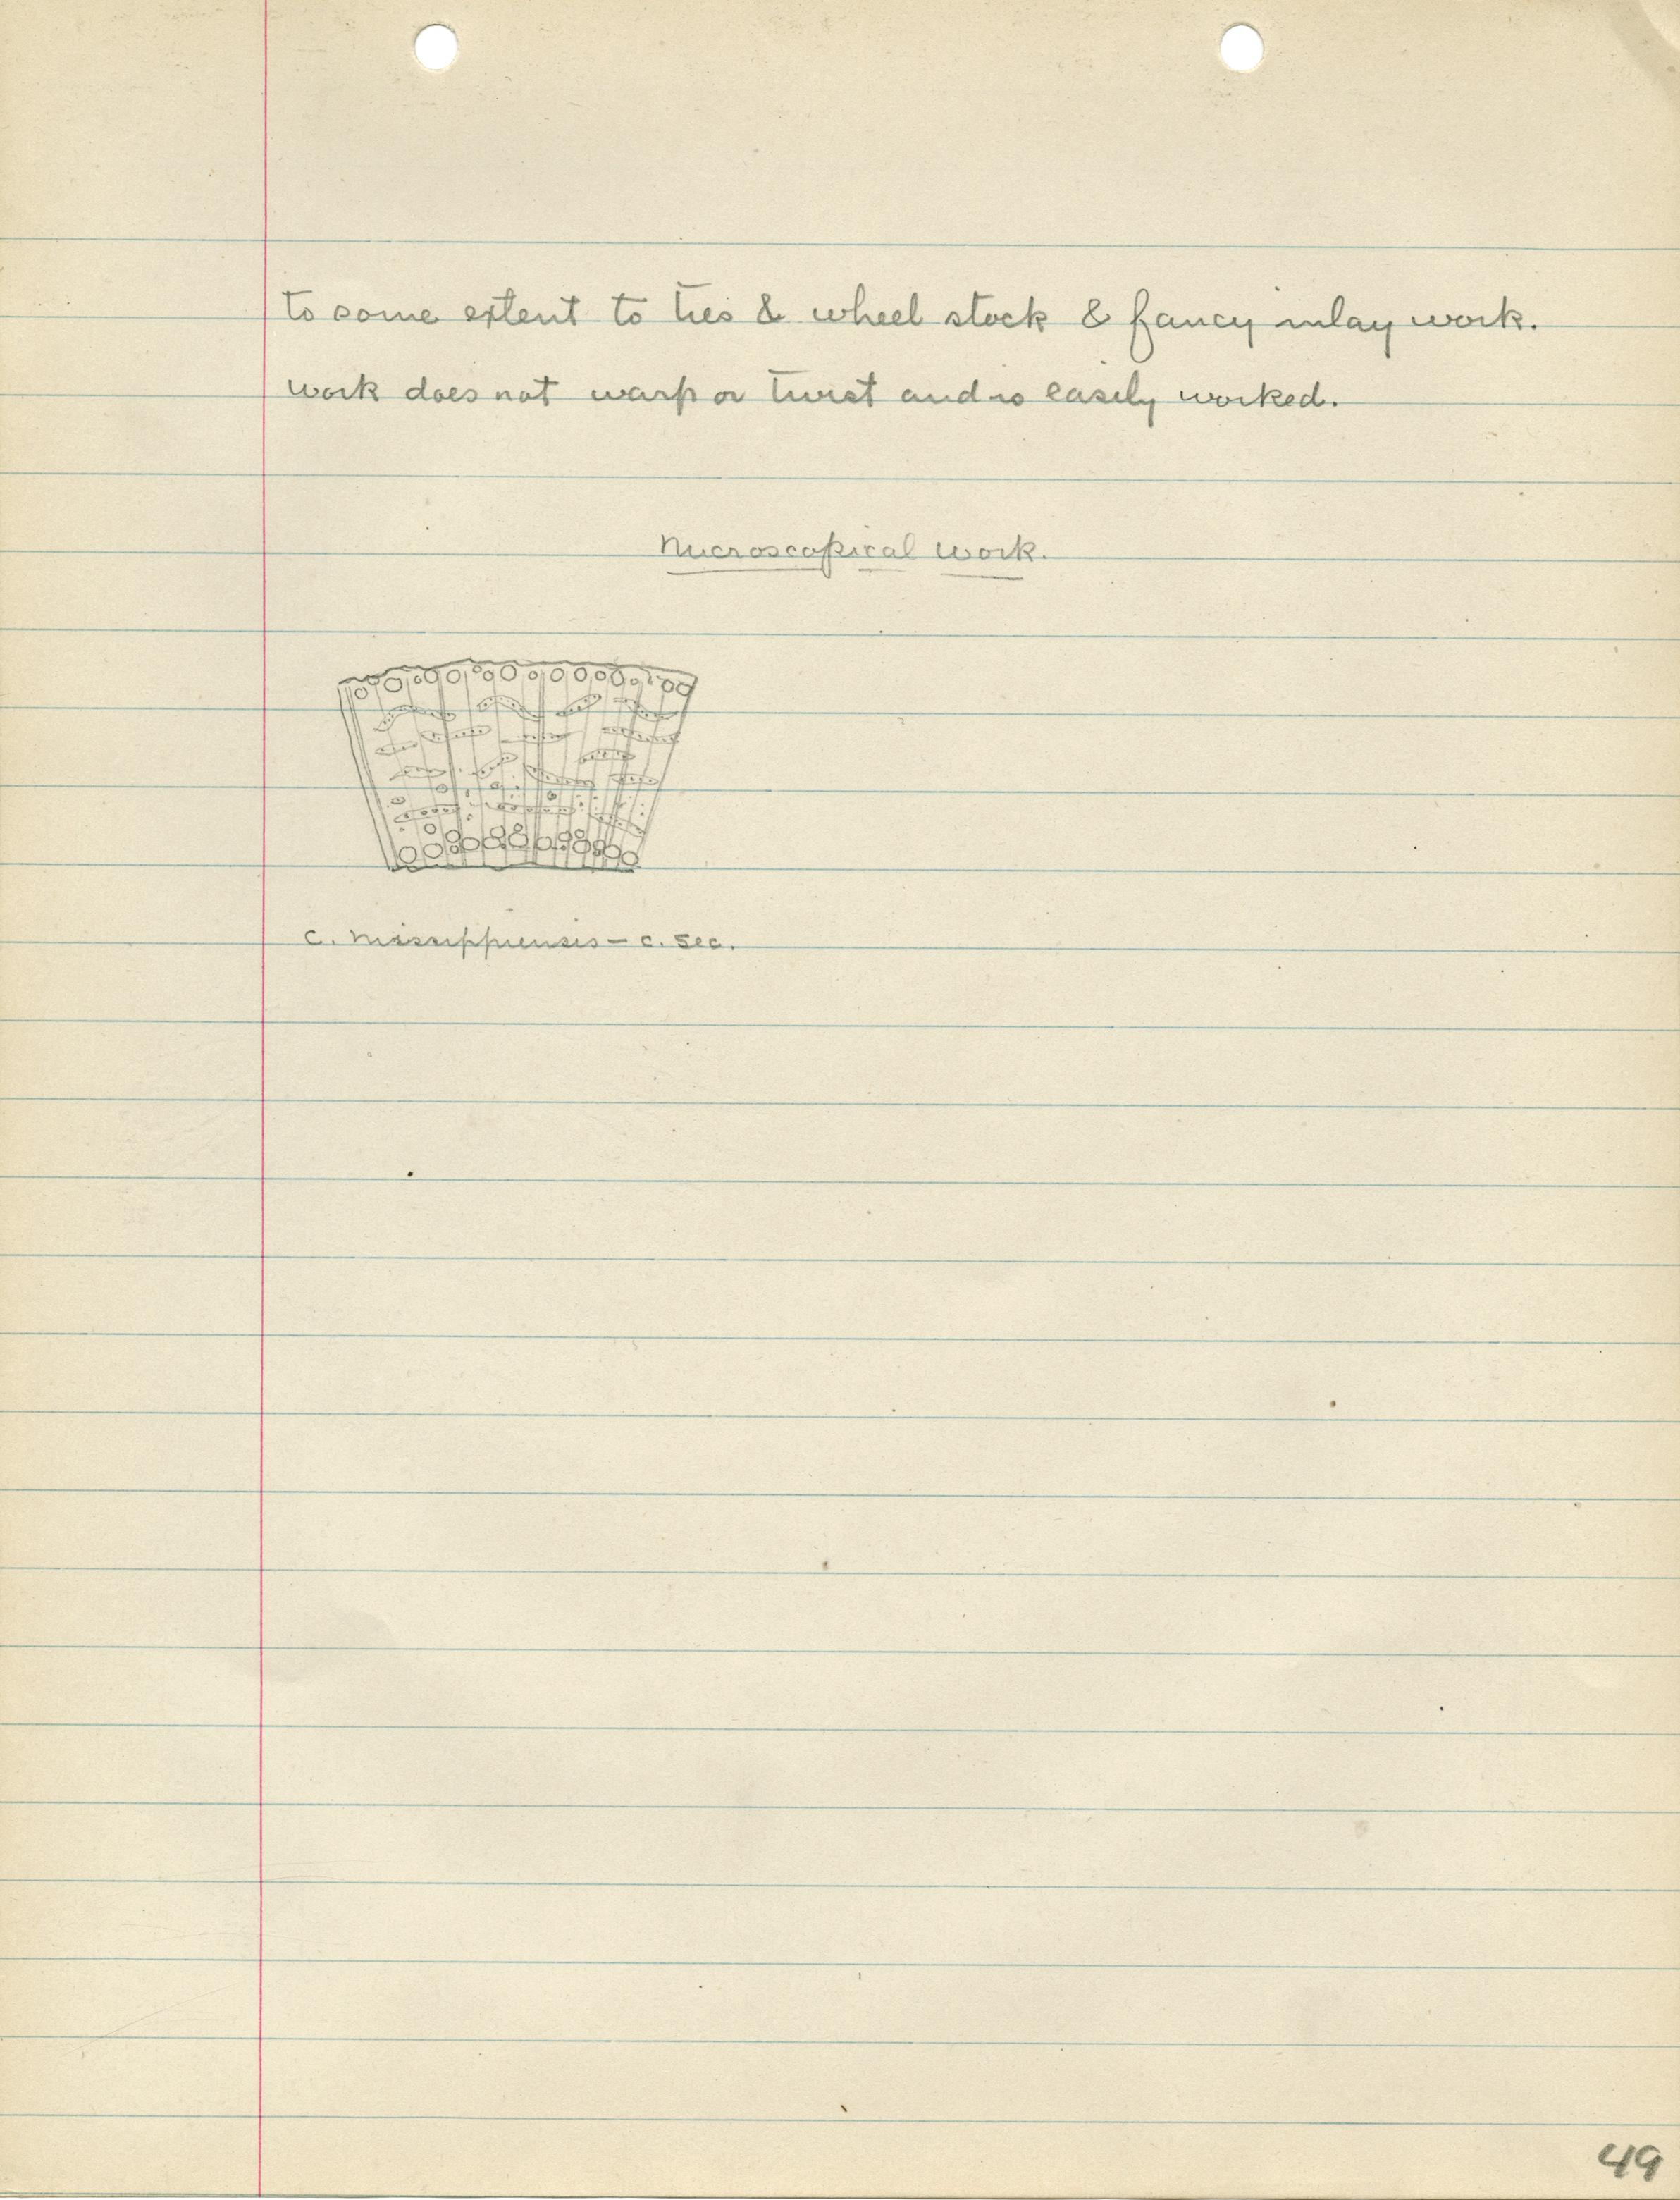 to some extent to ties & wheel stock & fancy inlay work.
work does not warp or twist and is easily worked.
Microscopical work.
C. Mississippiensis - c. sec.
49